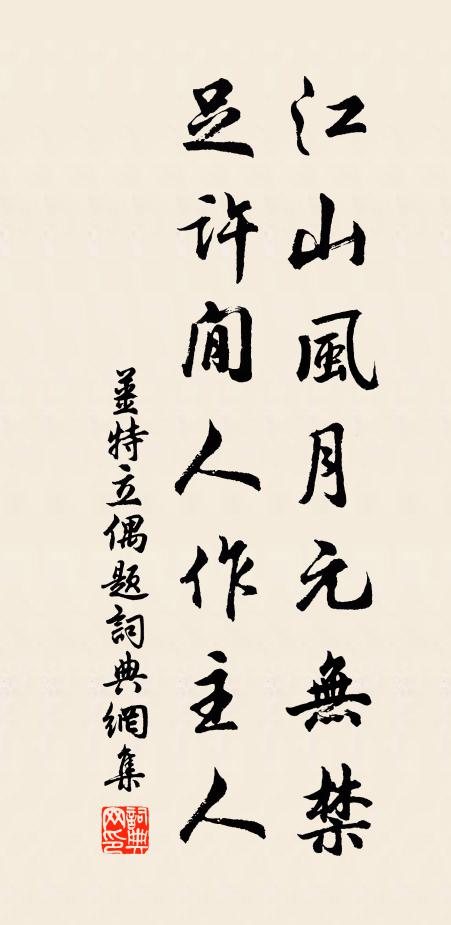 江山風月元無禁
足許閒人作主人
薑特立偶題詞典網集
詞典网印